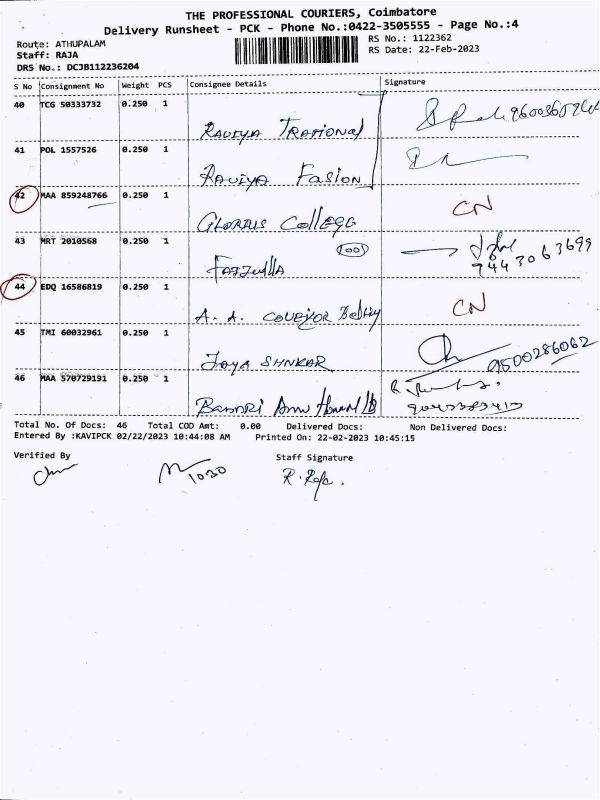 THE PROFESSIONAL COURIERS, Coimbatore
Delivery Runsheet - PCK - Phone No.:0422-3505555 - Page No.:4
Route: ATHUPALAM
RS No.: 1122362
Staff: RAJA
RS Date: 22-Feb-2023
DRS No.: DCJB112236204
S No Consignment No Weight PCS Consignee Details Signature
40 TCG 50333732 0.250 1
RAVIYA
41 POL 1557526 0.250 1
RAVIYA Fasion
42 MAA 859248766 0.250 1 CN
College
43 MRT 2010568 0.250 1
9443063699
44 EDQ 16586819 0.250 1 CN
A. A.
45 TMI 60032961 0.250 1
9500286062
JOYA SHNKAR
46 MAA 570729191 0.250 1
Total No. Of Docs: 46 Total COD Amt: 0.00 Delivered Docs: Non Delivered Docs:
Entered By :KAVIPCK 02/22/2023 10:44:08 AM Printed On: 22-02-2023 10:45:15
Verified By Staff Signature
1030 R. Raja.